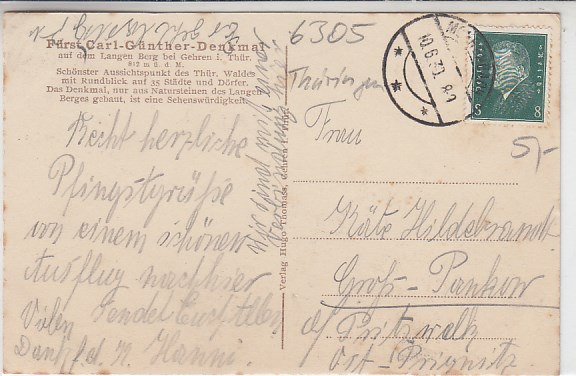 6305
Fürst Carl-Günther-Denkmal
auf dem Langen Berg bei Gehren i. Thür.
812 m ü. d. M.
Schönster Aussichtspunkt des Thür. Waldes
mit Rundblick auf 35 Städte und Dörfer.
Das Denkmal, nur aus Natursteinen des Langen
Berges gebaut, ist eine Sehenswürdigkeit.
Recht herzliche
Pfingstgrüße
von einem schönen
Ausflug nach hier
sendet Euch Allen
Vielen
Dank f. d. K. Hanni.
Verlag Hugo Thomas, Gehren
Thüringen
10.6.30. 8-9
8 8
5,-
Frau
Käte Hildebrandt
Groß-Pankow
b/ Pritzwalk
Ost-Prignitz